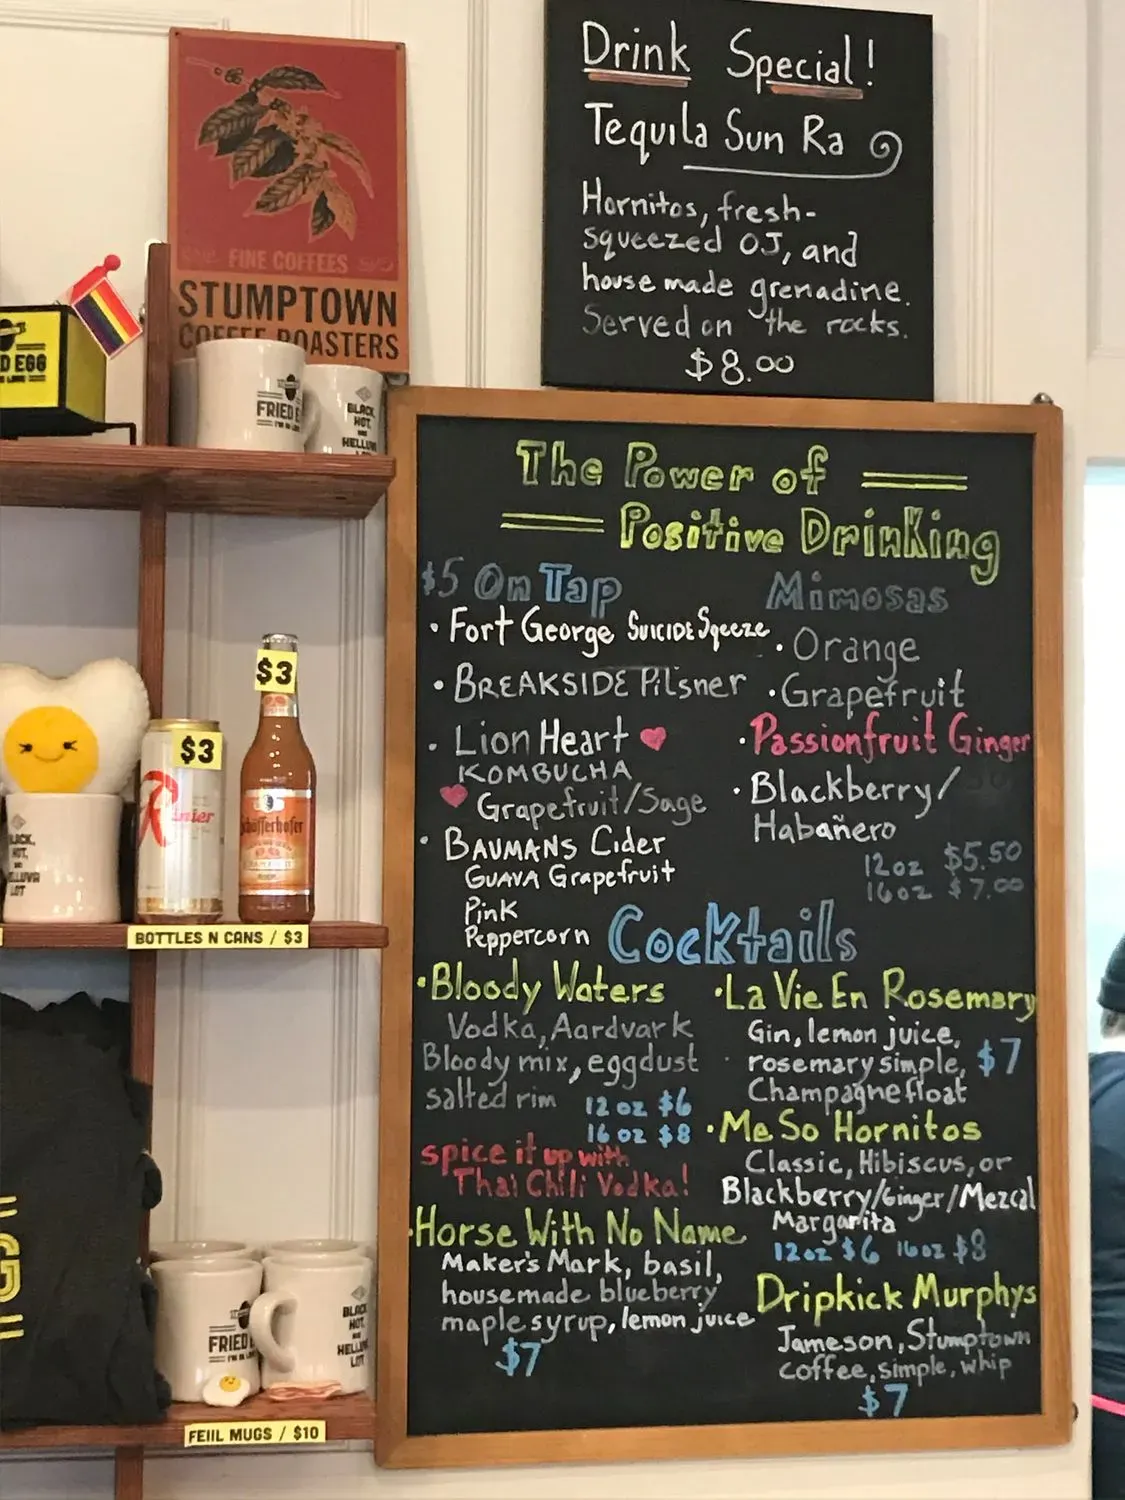 Drink Special!
Tequila Sun Ra
Hornitos, fresh-
squeezed OJ, and
house made grenadine.
Served on the rocks.
$8.00
FINE COFFEES
STUMPTOWN
COFFEE ROASTERS
D EGG
FRIED E
I'M IN LOVE
BLACK,
HOT,
AND
HELLUVA
The Power of
Positive Drinking
$5 On Tap
• Fort George SUICIDE Squeeze
• BREAKSIDE Pilsner
• Lion Heart
KOMBUCHA
Grapefruit/Sage
• BAUMANS Cider
GUAVA Grapefruit
Pink
Peppercorn
Mimosas
• Orange
• Grapefruit
• Passionfruit Ginger
• Blackberry/
Habañero
12oz $5.50
16oz $7.00
Cocktails
• Bloody Waters
Vodka, Aardvark
Bloody mix, eggdust
salted rim
12 oz $6
16 oz $8
spice it up with
Thai Chili Vodka!
• Horse With No Name
Maker's Mark, basil,
housemade blueberry
maple syrup, lemon juice
$7
• La Vie En Rosemary
Gin, lemon juice,
rosemary simple,
Champagne float
$7
• Me So Hornitos
Classic, Hibiscus, or
Blackberry/Ginger/Mezcal
Margarita
12oz $6 16oz $8
Dripkick Murphys
Jameson, Stumptown
coffee, simple, whip
$7
$3
$3
Rainier
Schöfferhofer
BLACK,
HOT,
AND
HELLUVA
LOT
BOTTLES N CANS / $3
FRIED
I'M IN LOVE
BLACK
HOT,
AND
HELLUVA
LOT
G
FEIIL MUGS / $10